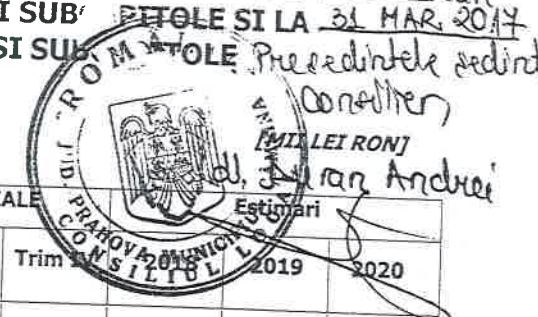 I SUB PITOLE SI LA 31 MAR. 2017
SI SUB TOLE Presedintele sedint
Consilier,
[MII LEI RON]
ROMANIA
JUD. PRAHOVA MUNICIPIUL
CONSILIUL LOCAL
Andrei
CALE Estimari
Trim 2018 2019 2020